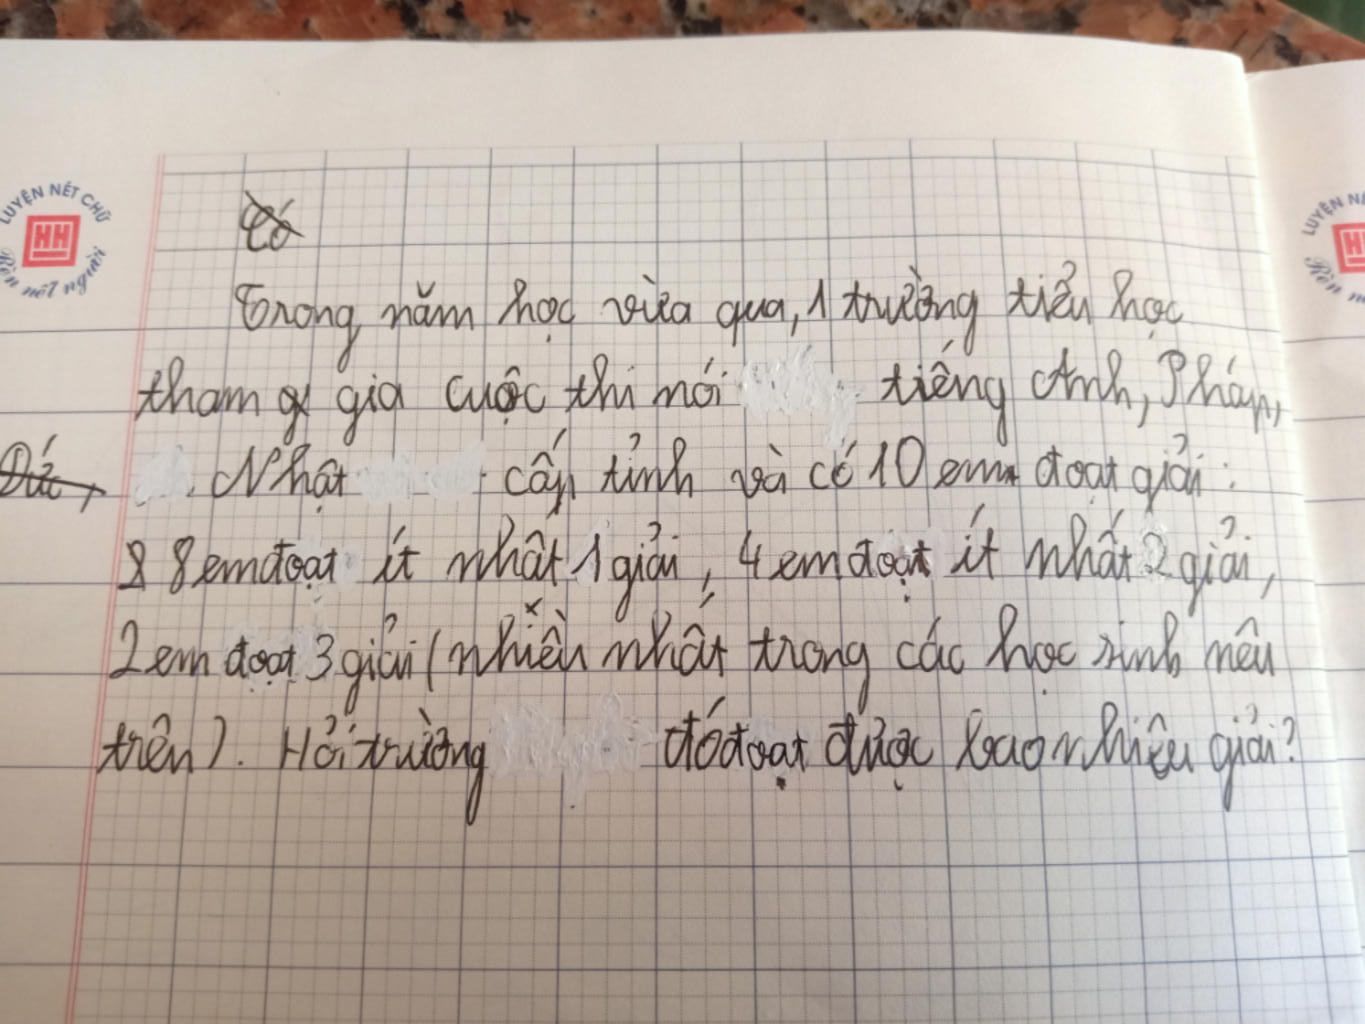 LUYỆN NÉT CHỮ
HH
Rèn nết người
LUYỆN
Có
Trong năm học vừa qua, 1 trường tiểu học
tham gia cuộc thi nói tiếng Anh, Pháp,
Đức, Nhật cấp tỉnh và có 10 em đoạt giải:
8 em đoạt ít nhất 1 giải, 4 em đoạt ít nhất 2 giải,
2 em đoạt 3 giải (nhiều nhất trong các học sinh nêu
trên). Hỏi trường đó đoạt được bao nhiêu giải?